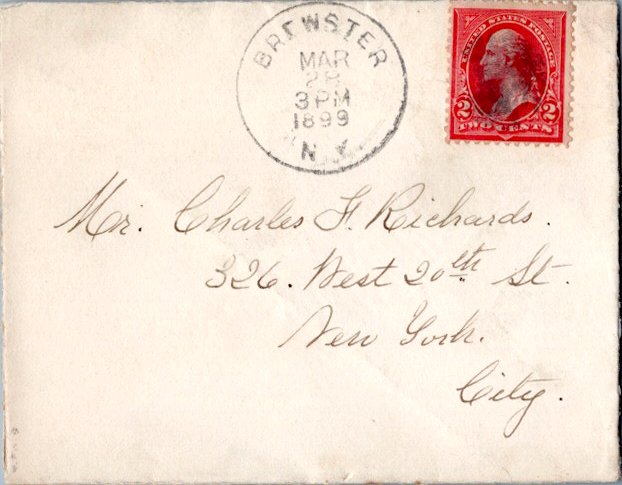 BREWSTER
MAR
28
3 PM
1899
N.Y.
UNITED STATES POSTAGE
2 2
TWO CENTS
Mr. Charles F. Richards.
326. West 20th St.
New York.
City.